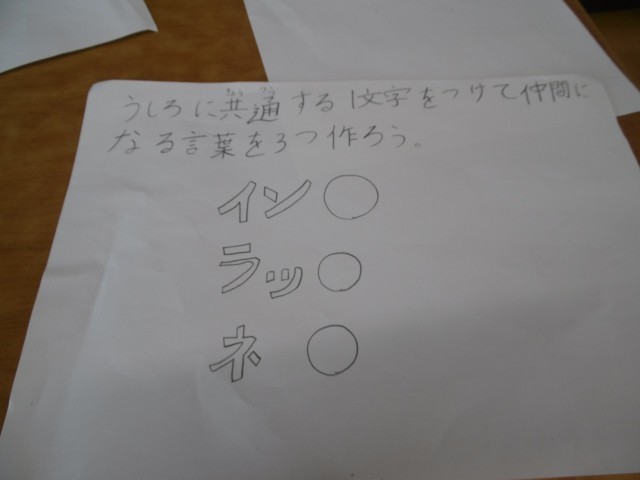 うしろに共通する1文字をつけて仲間に
なる言葉を3つ作ろう。
イン〇
ラッ〇
ネ〇